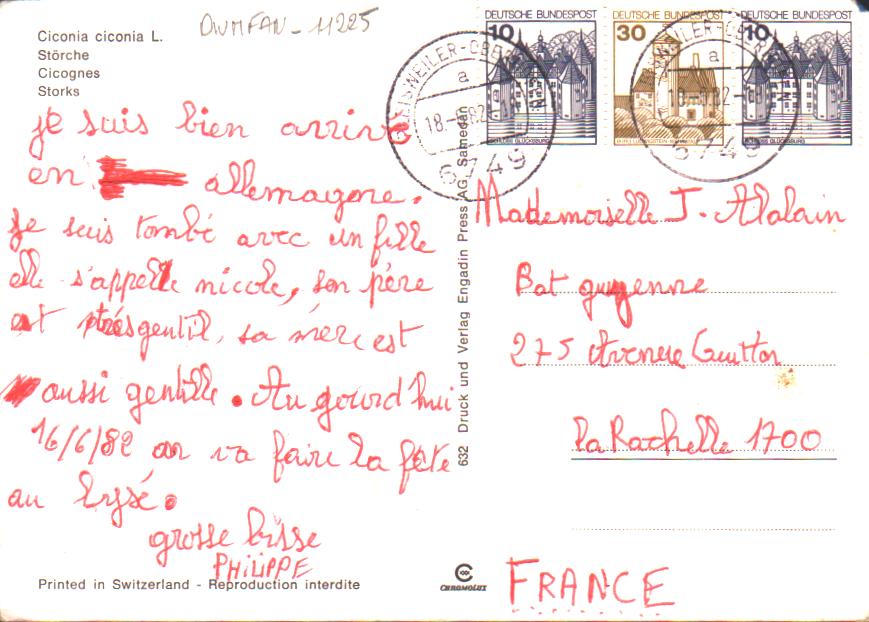 Ciconia ciconia L.
Störche
Cicognes
Storks
OWMFAN-11225
je suis bien arrivé
en allemagne.
Je suis tombé avec un fille
elle s'appelle nicole, son père
est très gentil, sa mère est
aussi gentille. Au gourd'hui
16/6/82 on va faire la fête
au lysé.
grosse bisse
PHILIPPE
Printed in Switzerland - Reproduction interdite
632 Druck und Verlag Engadin Press AG, Samedan
CHROMOLUX
DEUTSCHE BUNDESPOST
10
SCHLOSS GLÜCKSBURG
DEUTSCHE BUNDESPOST
30
DEUTSCHE BUNDESPOST
10
SCHLOSS GLÜCKSBURG
a
6749
a
6749
Mademoiselle J. Alalain
Bat guyenne
275 Avenue Guitton
la Rochelle 1700
FRANCE